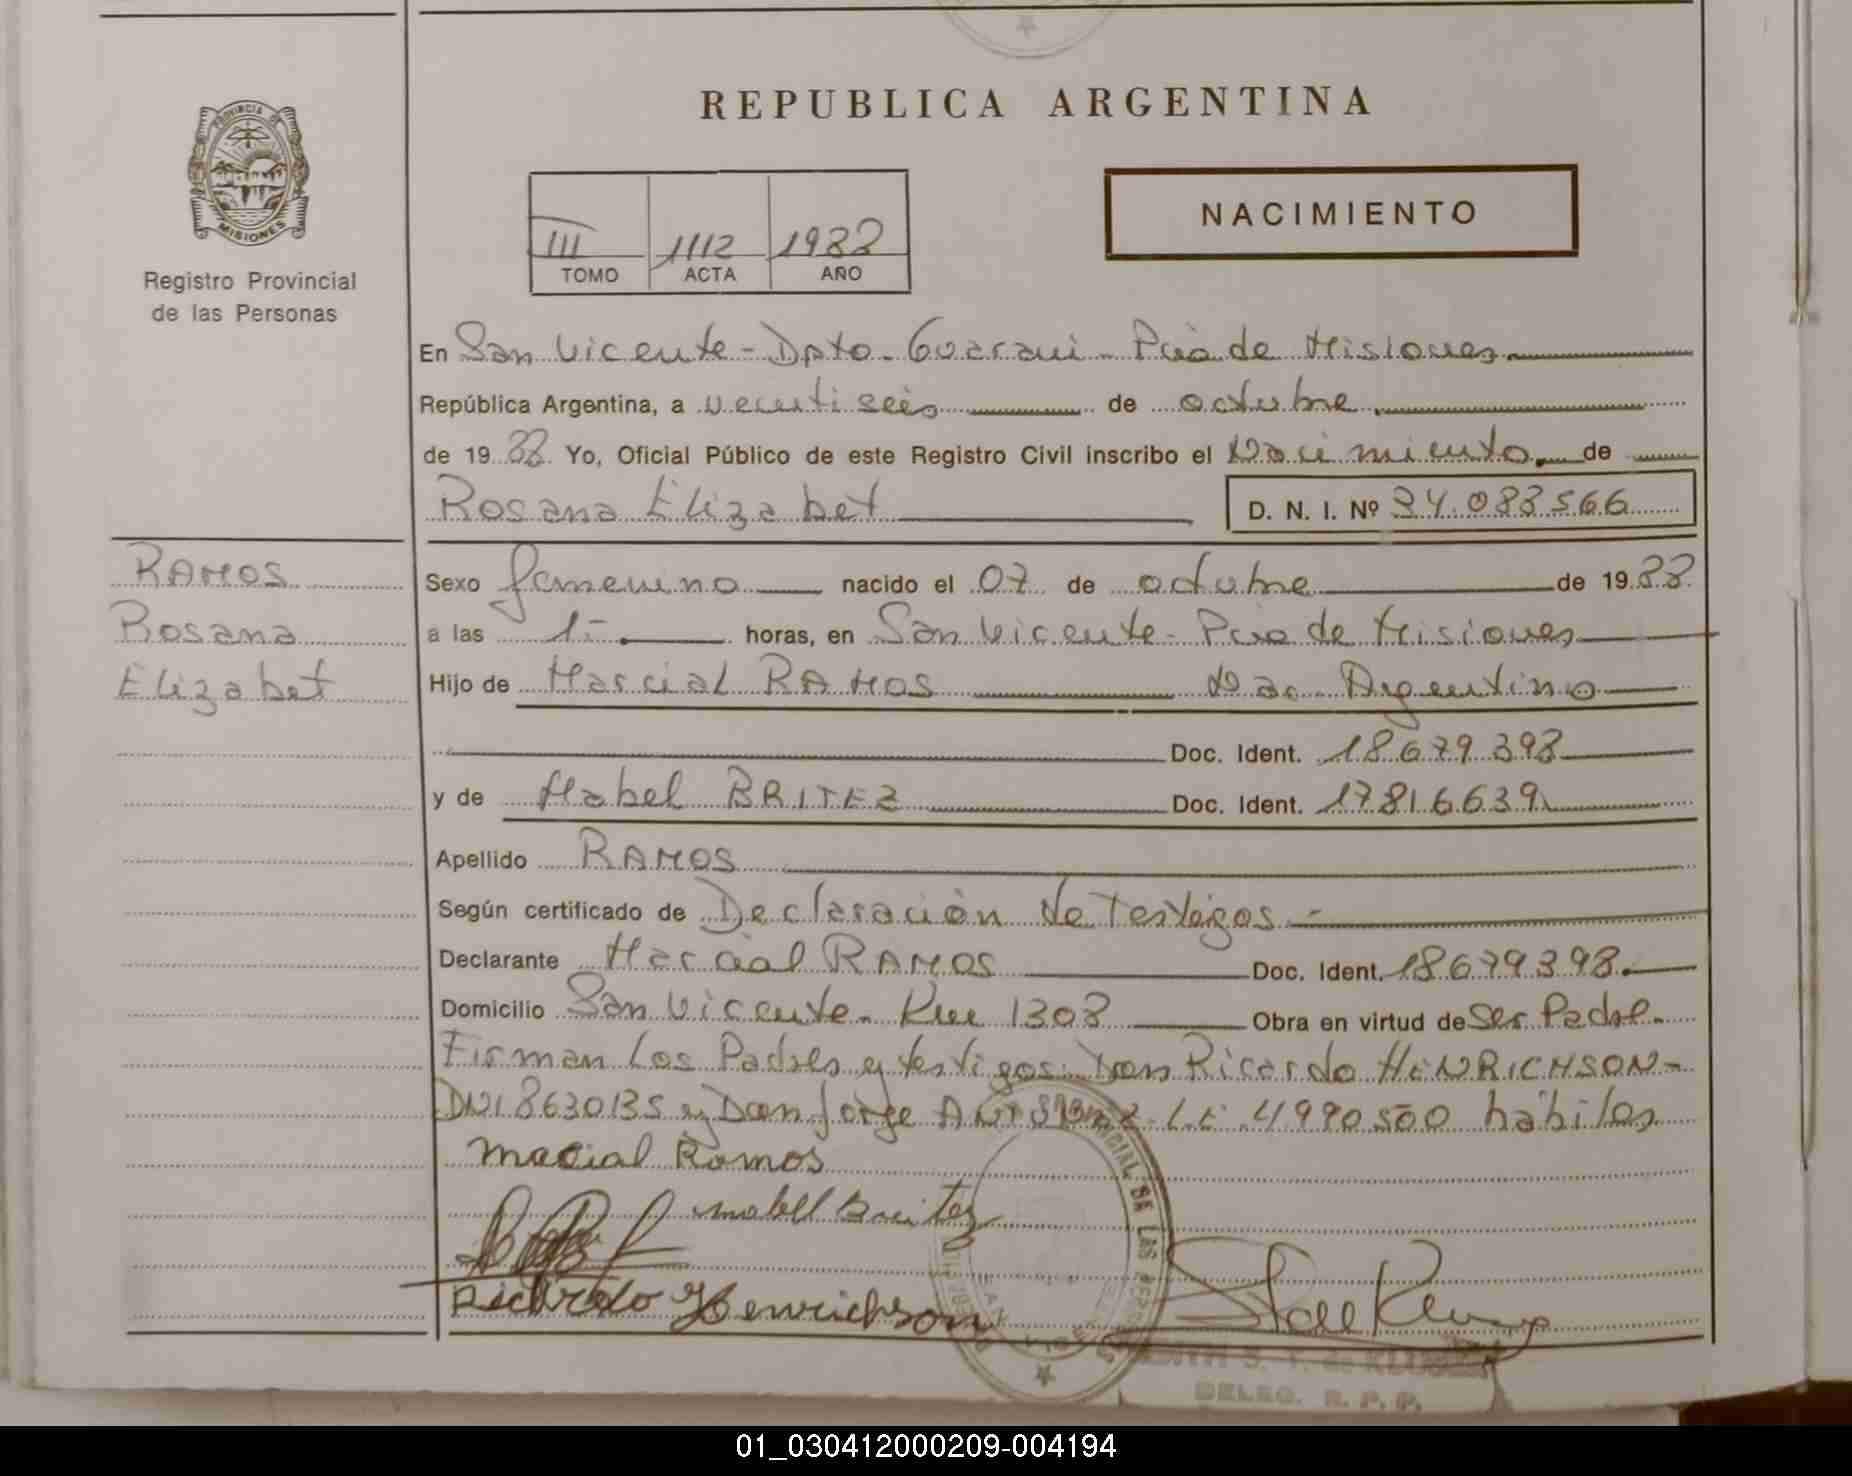 REPUBLICA ARGENTINA
PROVINCIA DE
MISIONES
Registro Provincial
de las Personas
NACIMIENTO
III 1112 1988
TOMO ACTA AÑO
En San Vicente - Dpto. Guarani - Pcia de Misiones
República Argentina, a veinti seis de octubre
de 19 88 Yo, Oficial Público de este Registro Civil inscribo el Nacimiento de
Rosana Elizabet D. N. I. Nº 34.088566
RAMOS
Rosana
Elizabet
Sexo femenino nacido el 07 de octubre de 19 88
a las 1.- horas, en San Vicente - Pcia de Misiones
Hijo de Marcial RAMOS Nac. Argentino
Doc. Ident. 18679398
y de Mabel BRITEZ Doc. Ident. 17816639
Apellido RAMOS
Según certificado de Declaración de Testigos -
Declarante Marcial RAMOS Doc. Ident. 18679398.
Domicilio San Vicente - Km 1308 Obra en virtud de Ser Padre.
Firman los Padres y testigos Don Ricardo HENRICHSON -
DNI 8630135 y Don Jorge L.E. 4990500 habiles
Macial Ramos
mabel Breitez
Ricardo Henrichson
DELEG. R. P. P.
01_030412000209-004194